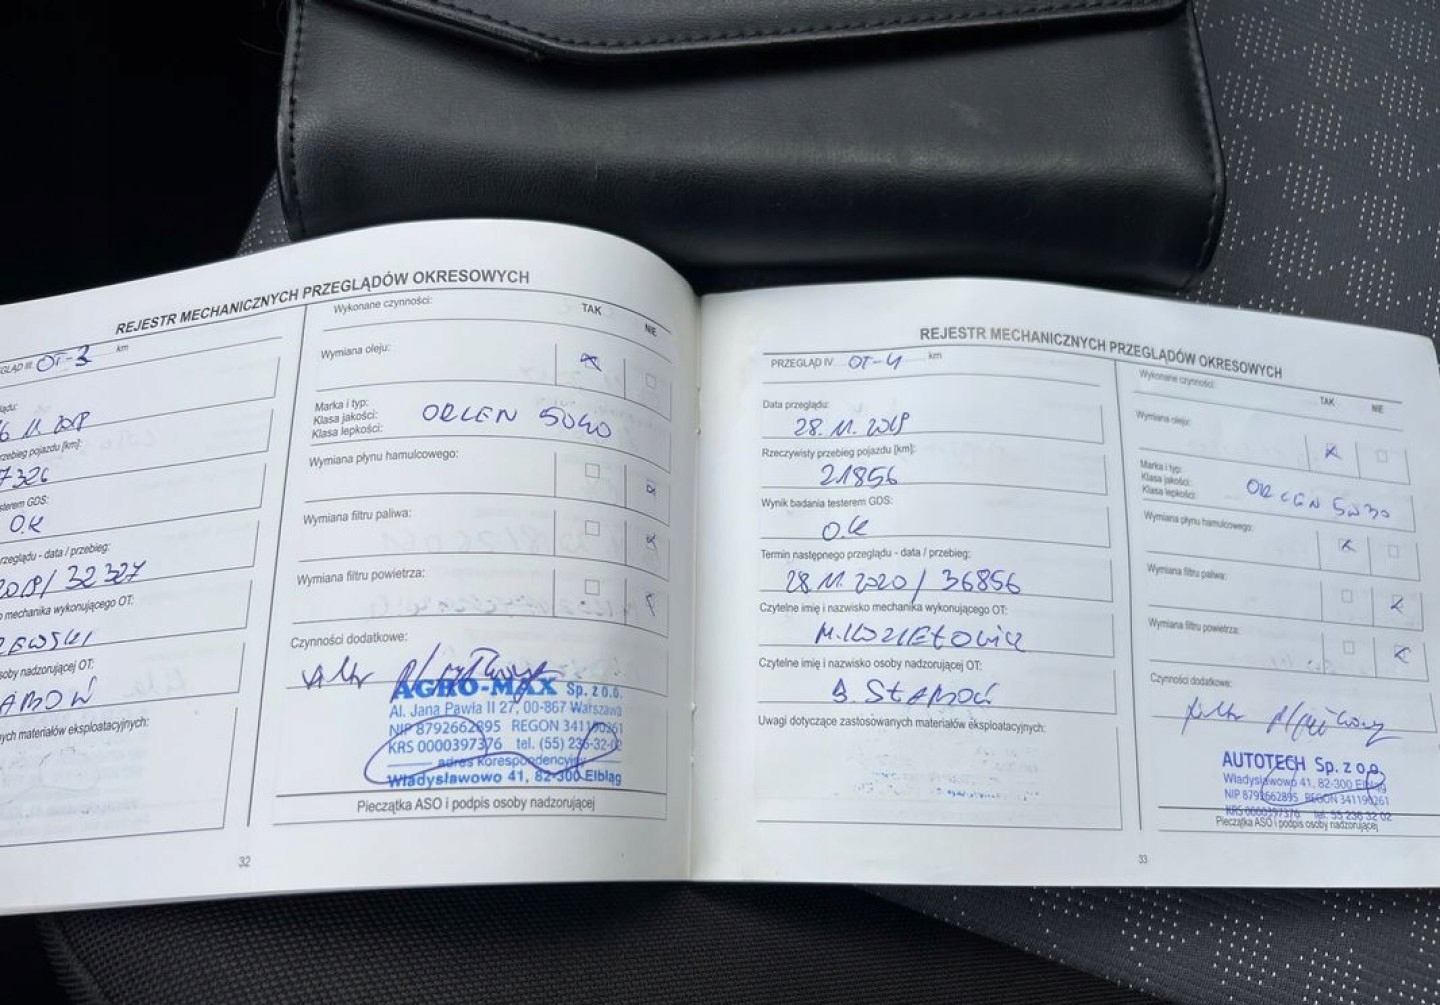 REJESTR MECHANICZNYCH PRZEGLĄDÓW OKRESOWYCH
GLĄD III OT-3 km
11.2018
rzebieg pojazdu [km]:
7326
sterem GDS:
O.K
rzeglądu - data / przebieg:
2019/32327
o mechanika wykonującego OT:
ZEWSKI
soby nadzorującej OT:
ych materiałów eksploatacyjnych:
Wykonane czynności: TAK NIE
Wymiana oleju:
Marka i typ:
Klasa jakości: ORLEN 5W40
Klasa lepkości:
Wymiana płynu hamulcowego:
Wymiana filtru paliwa:
Wymiana filtru powietrza:
Czynności dodatkowe:
AGRO-MAX Sp. z o.o.
Al. Jana Pawła II 27, 00-867 Warszawa
NIP 8792662895 REGON 341190261
KRS 0000397376 tel. (55) 236-32-02
adres korespondencyjny
Władysławowo 41, 82-300 Elbląg
Pieczątka ASO i podpis osoby nadzorującej
32
REJESTR MECHANICZNYCH PRZEGLĄDÓW OKRESOWYCH
PRZEGLĄD IV OT-4 km
Data przeglądu:
28.11.2019
Rzeczywisty przebieg pojazdu [km]:
21856
Wynik badania testerem GDS:
O.K
Termin następnego przeglądu - data / przebieg:
28.11.2020 / 36856
Czytelne imię i nazwisko mechanika wykonującego OT:
Czytelne imię i nazwisko osoby nadzorującej OT:
Uwagi dotyczące zastosowanych materiałów eksploatacyjnych:
Wykonane czynności: TAK NIE
Wymiana oleju:
Marka i typ:
Klasa jakości: ORLEN 5W30
Klasa lepkości:
Wymiana płynu hamulcowego:
Wymiana filtru paliwa:
Wymiana filtru powietrza:
Czynności dodatkowe:
AUTOTECH Sp. z o.o.
Władysławowo 41, 82-300 Elbląg
NIP 8792662895 REGON 341190261
KRS 0000397376 tel. 55 236 32 02
Pieczątka ASO i podpis osoby nadzorującej
33